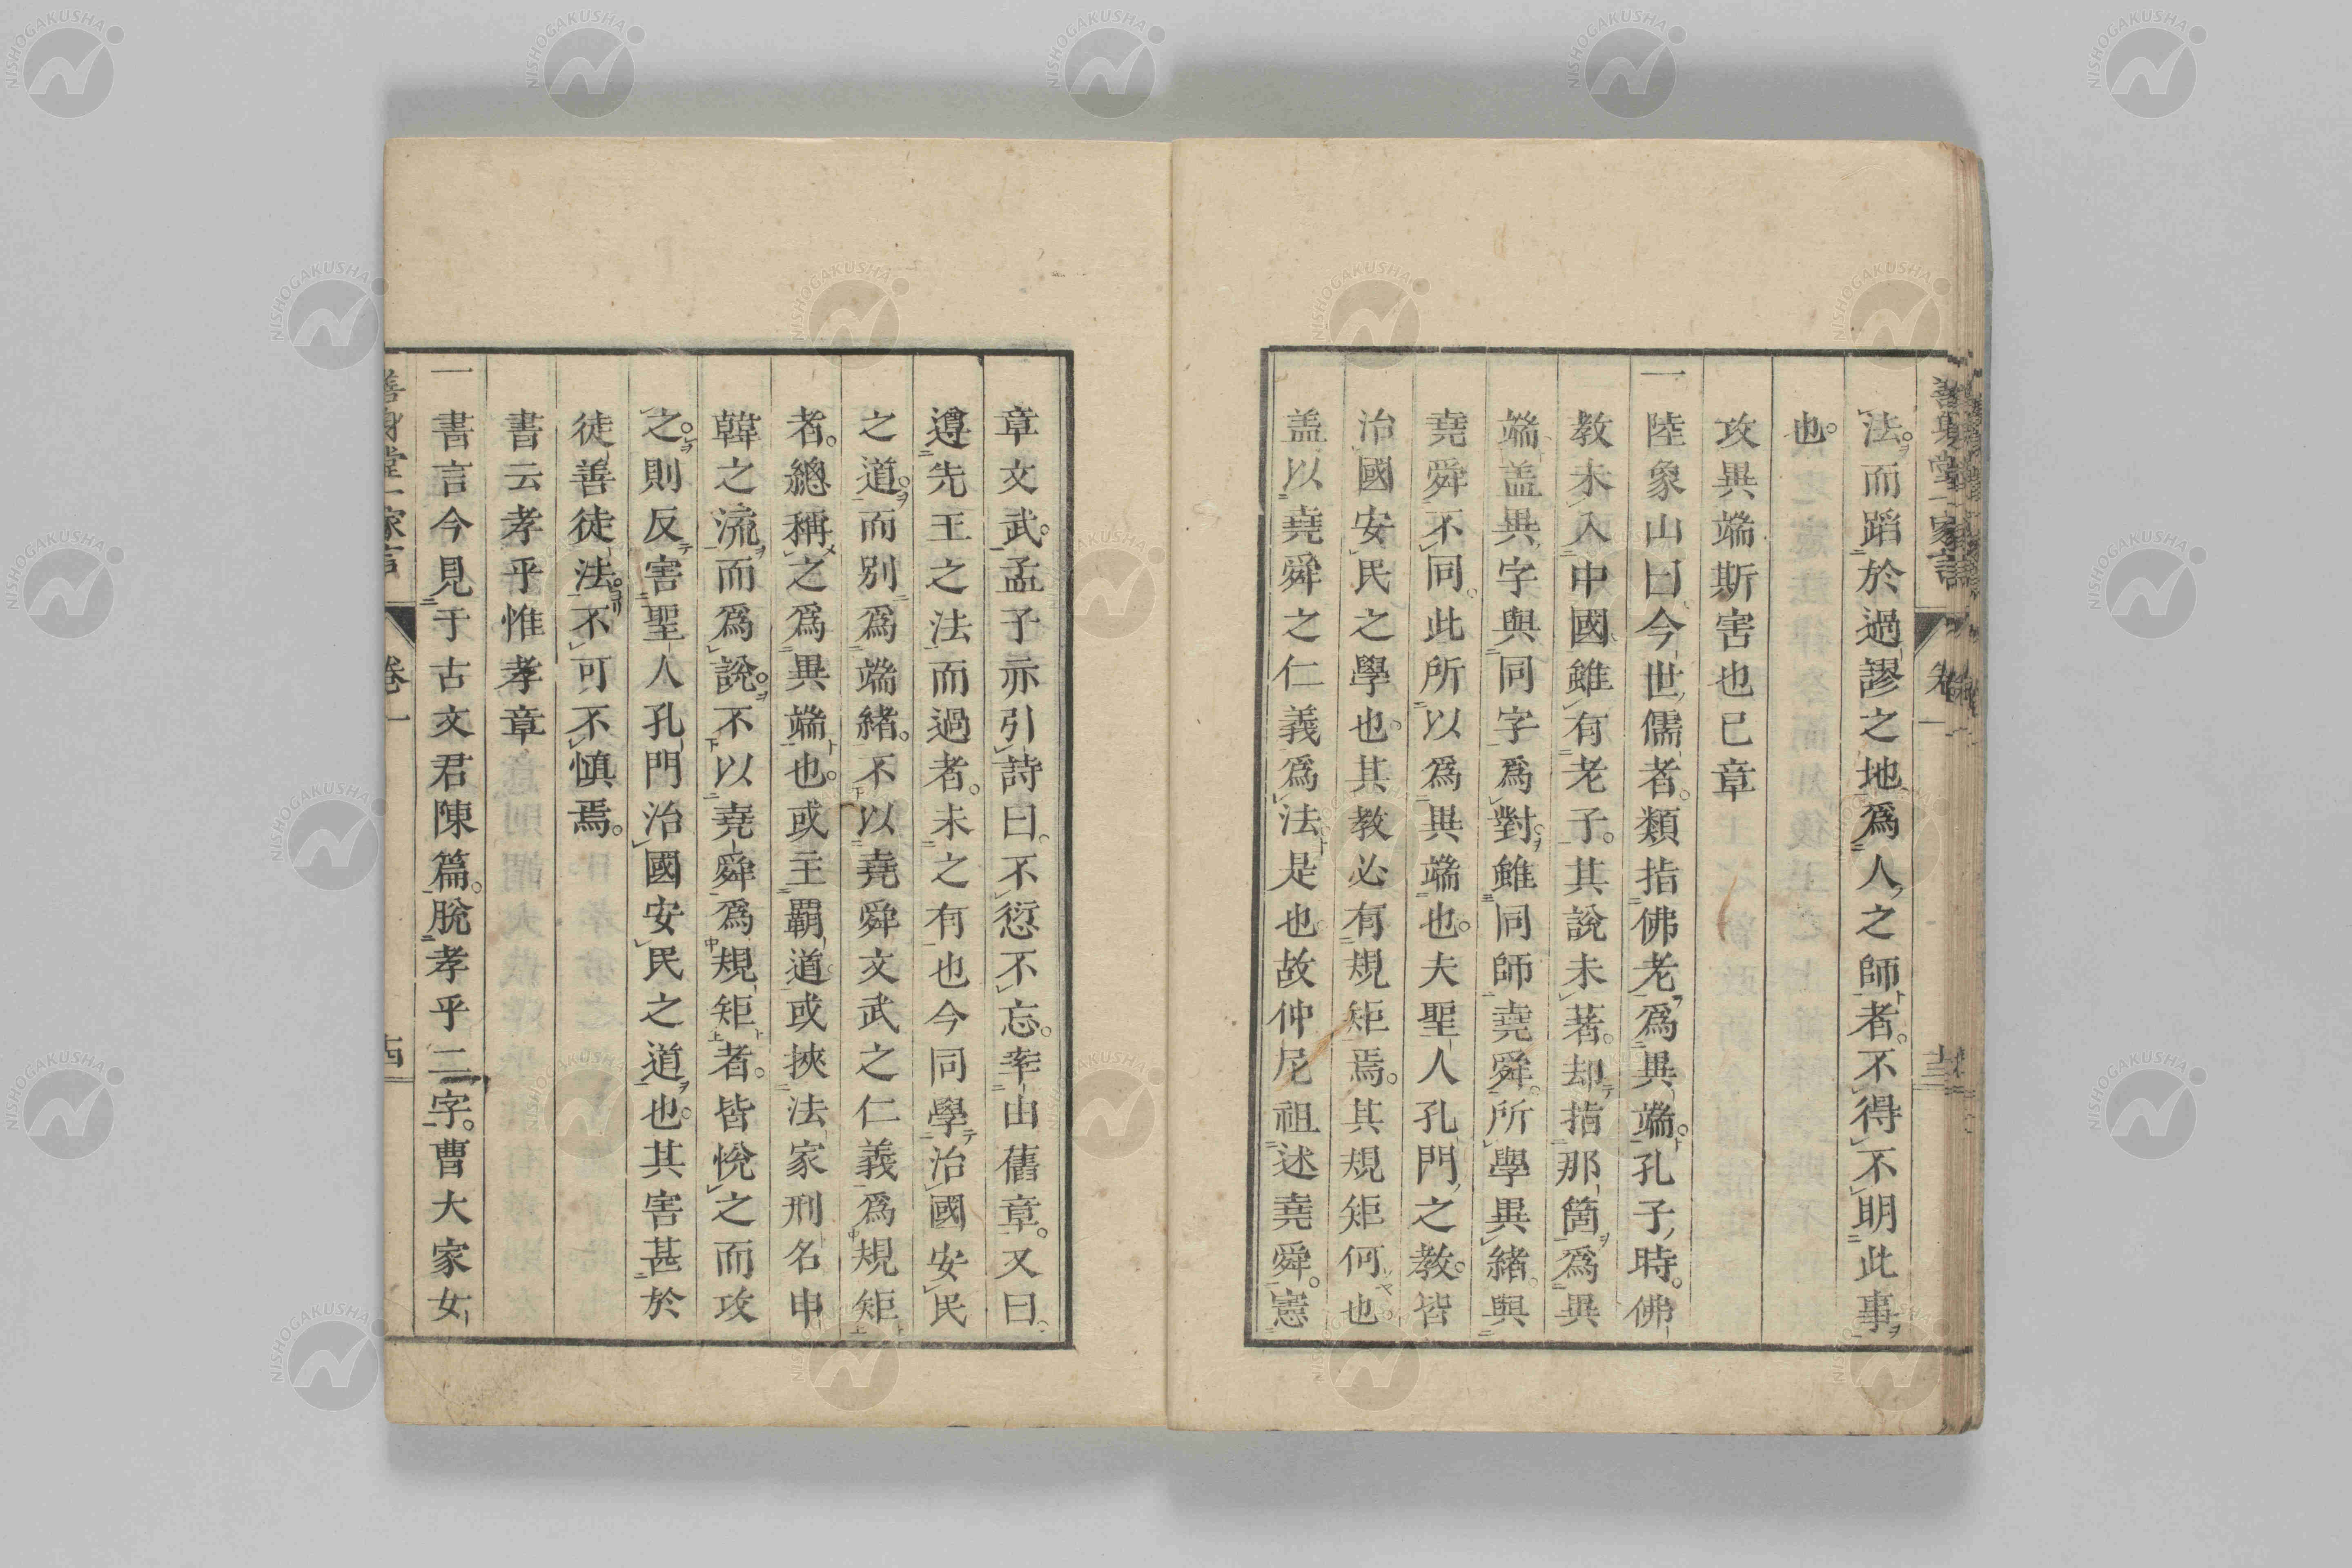 法而蹈於過謬之地爲人之師者不得不明此事
也
攻異端斯害也已章
一陸象山曰今世儒者類指佛老爲異端孔子時佛
教未入中國雖有老子其說未著却指那箇爲異
端盖異字與同字爲對雖同師堯舜所學異緒與
堯舜不同此所以爲異端也夫聖人孔門之教皆
治國安民之學也其教必有規矩焉其規矩何也
盖以堯舜之仁義爲法是也故仲尼祖述堯舜憲
章文武孟子亦引詩曰不愆不忘率由舊章又曰
遵先王之法而過者未之有也今同學治國安民
之道而別爲端緒不以堯舜文武之仁義爲規矩
者總稱之爲異端也或王霸道或挾法家刑名申
韓之流而爲說不以堯舜爲規矩者皆悅之而攻
之則反害聖人孔門治國安民之道也其害甚於
徒善徒法不可不愼焉
書云孝乎惟孝章
一書言今見于古文君陳篇脫孝乎二字曹大家女
善身堂一家言 卷一
NISHOGAKUSHA